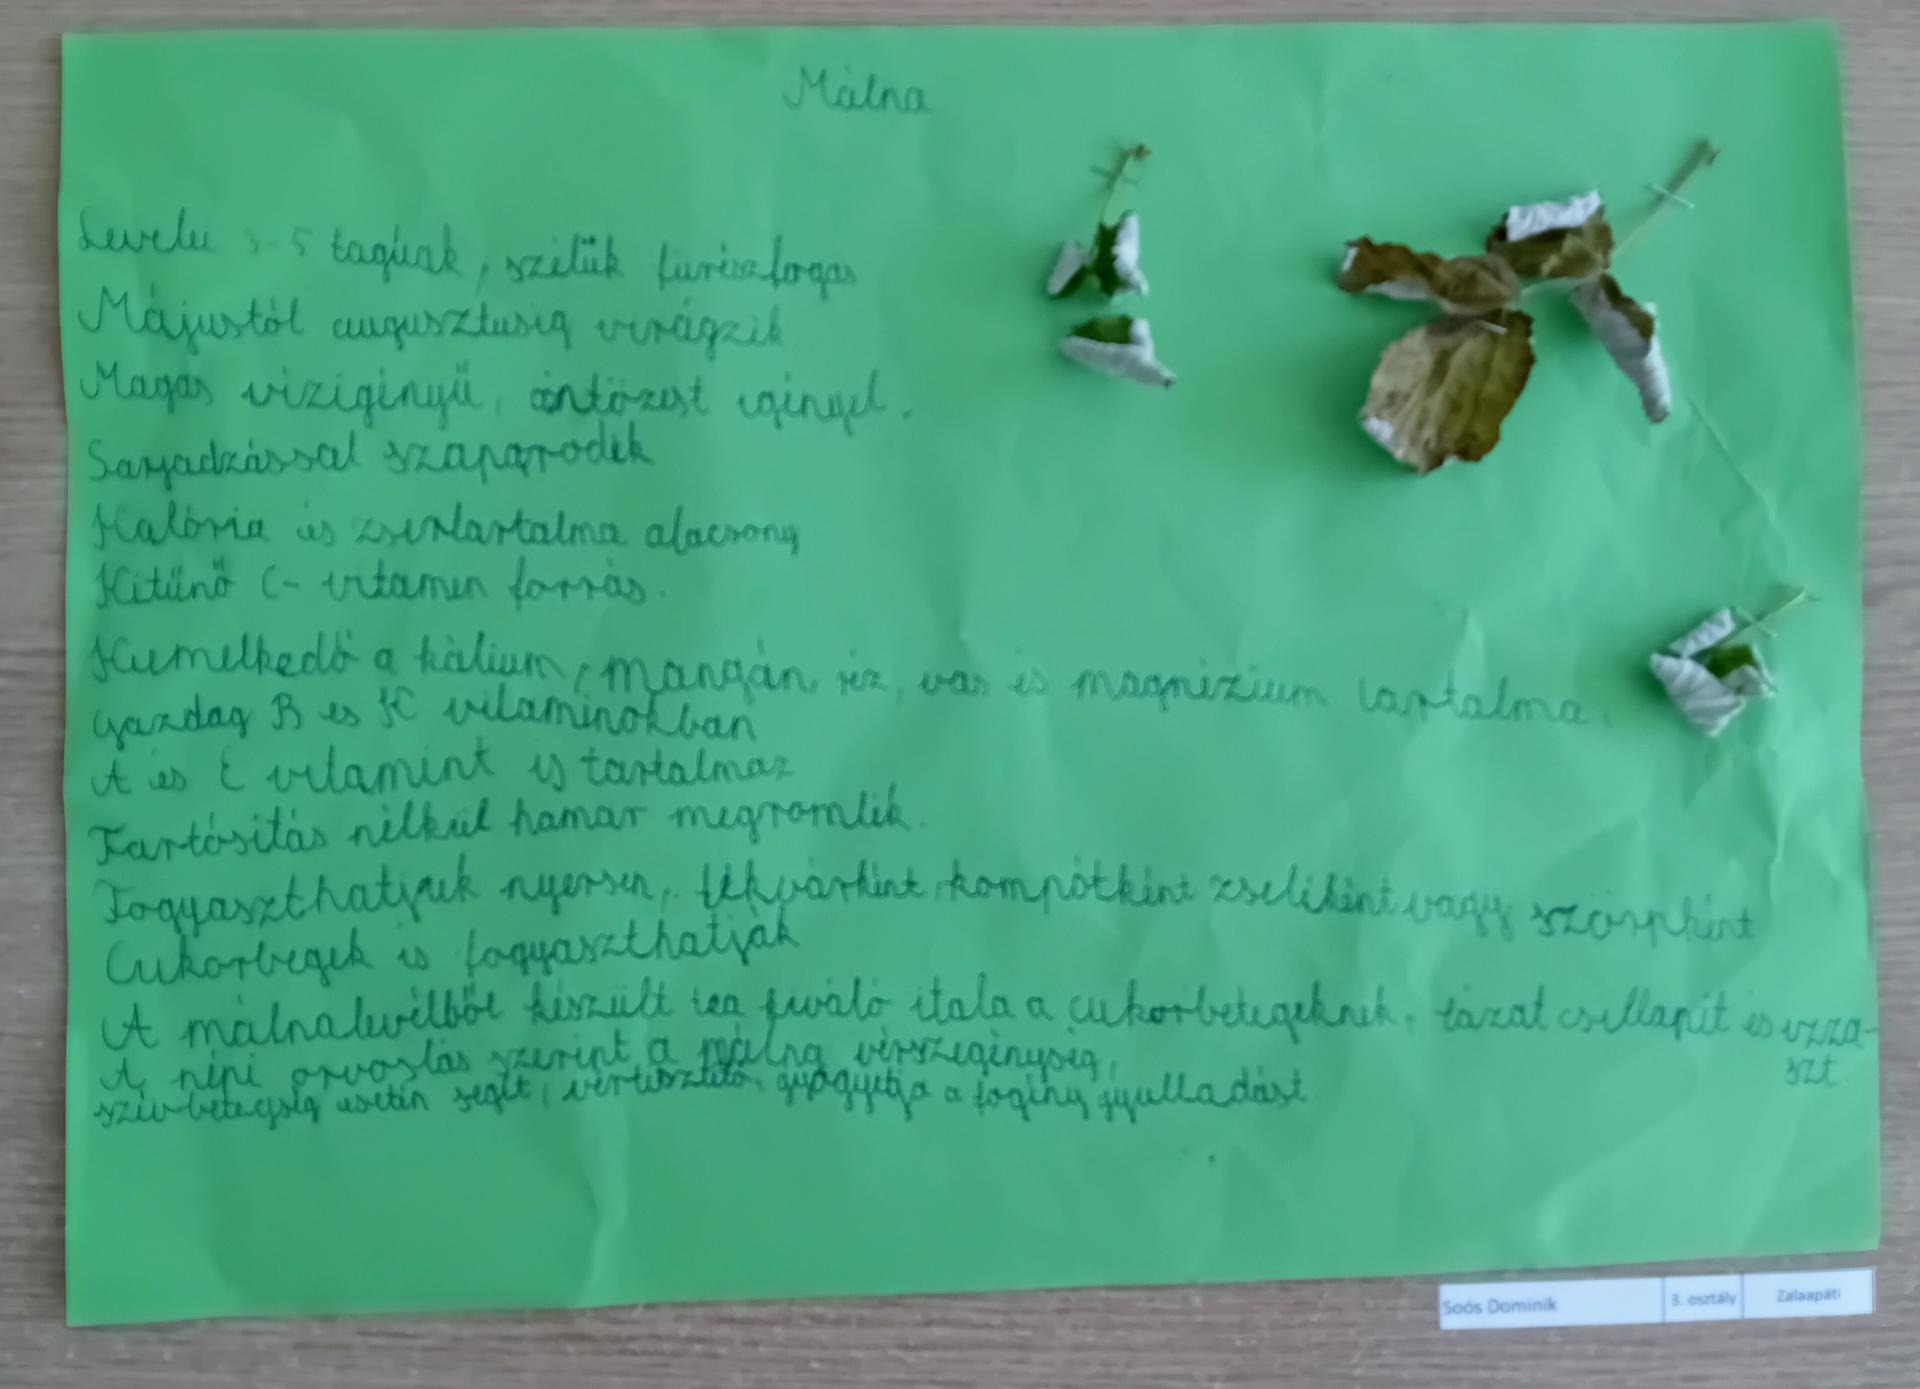 Málna
Levelei 3-5 tagúak, szélük fűrészfogas
Májustól augusztusig virágzik
Magas vízigényű, öntözést igényel.
Sarjadzással szaparodik
Kalória és zsírtartalma alacsony
Kitűnő C- vitamin forrás.
Kiemelkedő a kálium, mangán, réz, vas és magnézium tartalma.
Gazdag B és K vitaminokban
A és E vitamint is tartalmaz
Tartósítás nélkül hamar megromlik.
Fogyaszthatjuk nyersen, lekvárként, kompótként zseléként vagy szörpként
Cukorbegek is fogyaszthatják
A málnalevélből készült tea kiváló itala a cukorbetegeknek, lázat csillapít és izza-
szt.
A népi orvoslás szerint a málna vérszegénység,
szívbetegség esetén segít, vértisztító, gyógyítja a fogíny gyulladást
Soós Dominik 3. osztály Zalaapáti